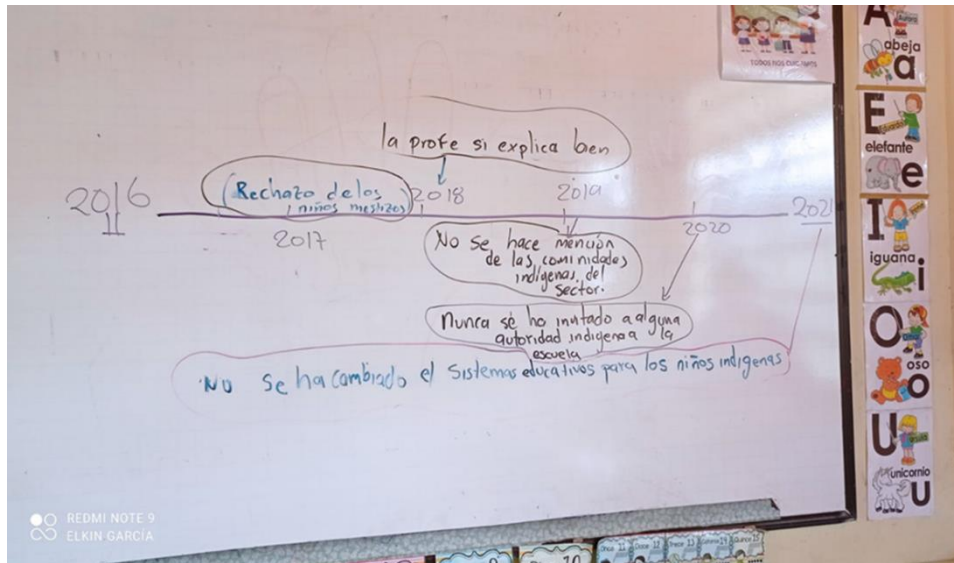 la profe si explica bien
2016
(Rechazo de los
niños mestizos)
2018
2019
2021
2017
2020
No se hace mención
de las cominidades
indígenas del
sector.
Nunca se ha invitado a alguna
autoridad indigena a la
escuela
No se ha cambiado el sistemas educativos para los niños indigenas
TODOS NOS CUIDAMOS
A
abeja
a
E
Eduardo
elefante
e
I
iguana
i
O
oso
o
U
unicornio
u
REDMI NOTE 9
ELKIN GARCÍA
10
Once 11
Doce 12
Trece 13